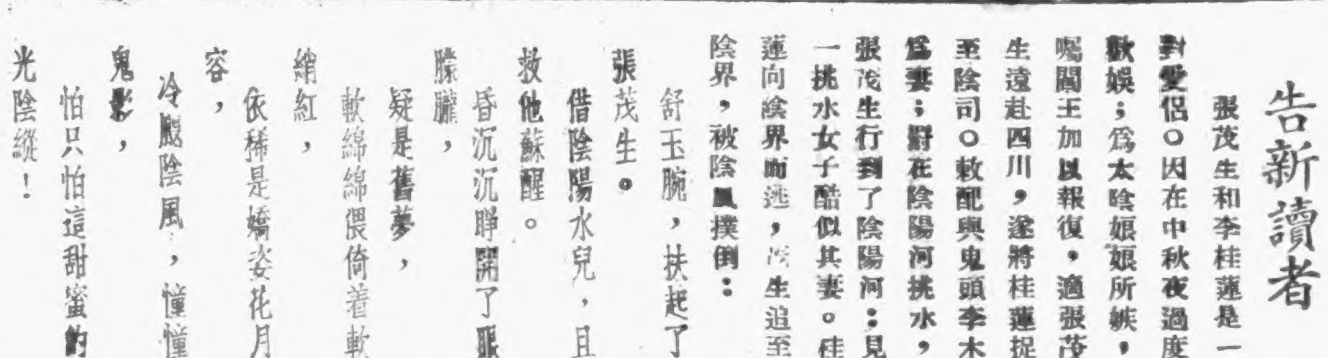 告新讀者
張茂生和李桂蓮是一
對愛侶。因在中秋夜過度
歡娛；爲太陰娘娘所嫉，
囑閻王加以報復，適張茂
生遠赴四川，遂將桂蓮捉
至陰司。敕配與鬼頭李木
爲妻；罸在陰陽河挑水，
張茂生行到了陰陽河：見
一挑水女子酷似其妻。桂
蓮向陰界而逃，茂生追至
陰界，被陰風撲倒：
舒玉腕，扶起了
張茂生。
借陰陽水兒，且
救他蘇醒。
昏沉沉睜開了眼
朦朧，
疑是舊夢，
軟綿綿偎倚着軟
綃紅，
依稀是嬌姿花月
容，
冷颼陰風，憧憧
鬼影，
怕只怕這甜蜜的
光陰縱！